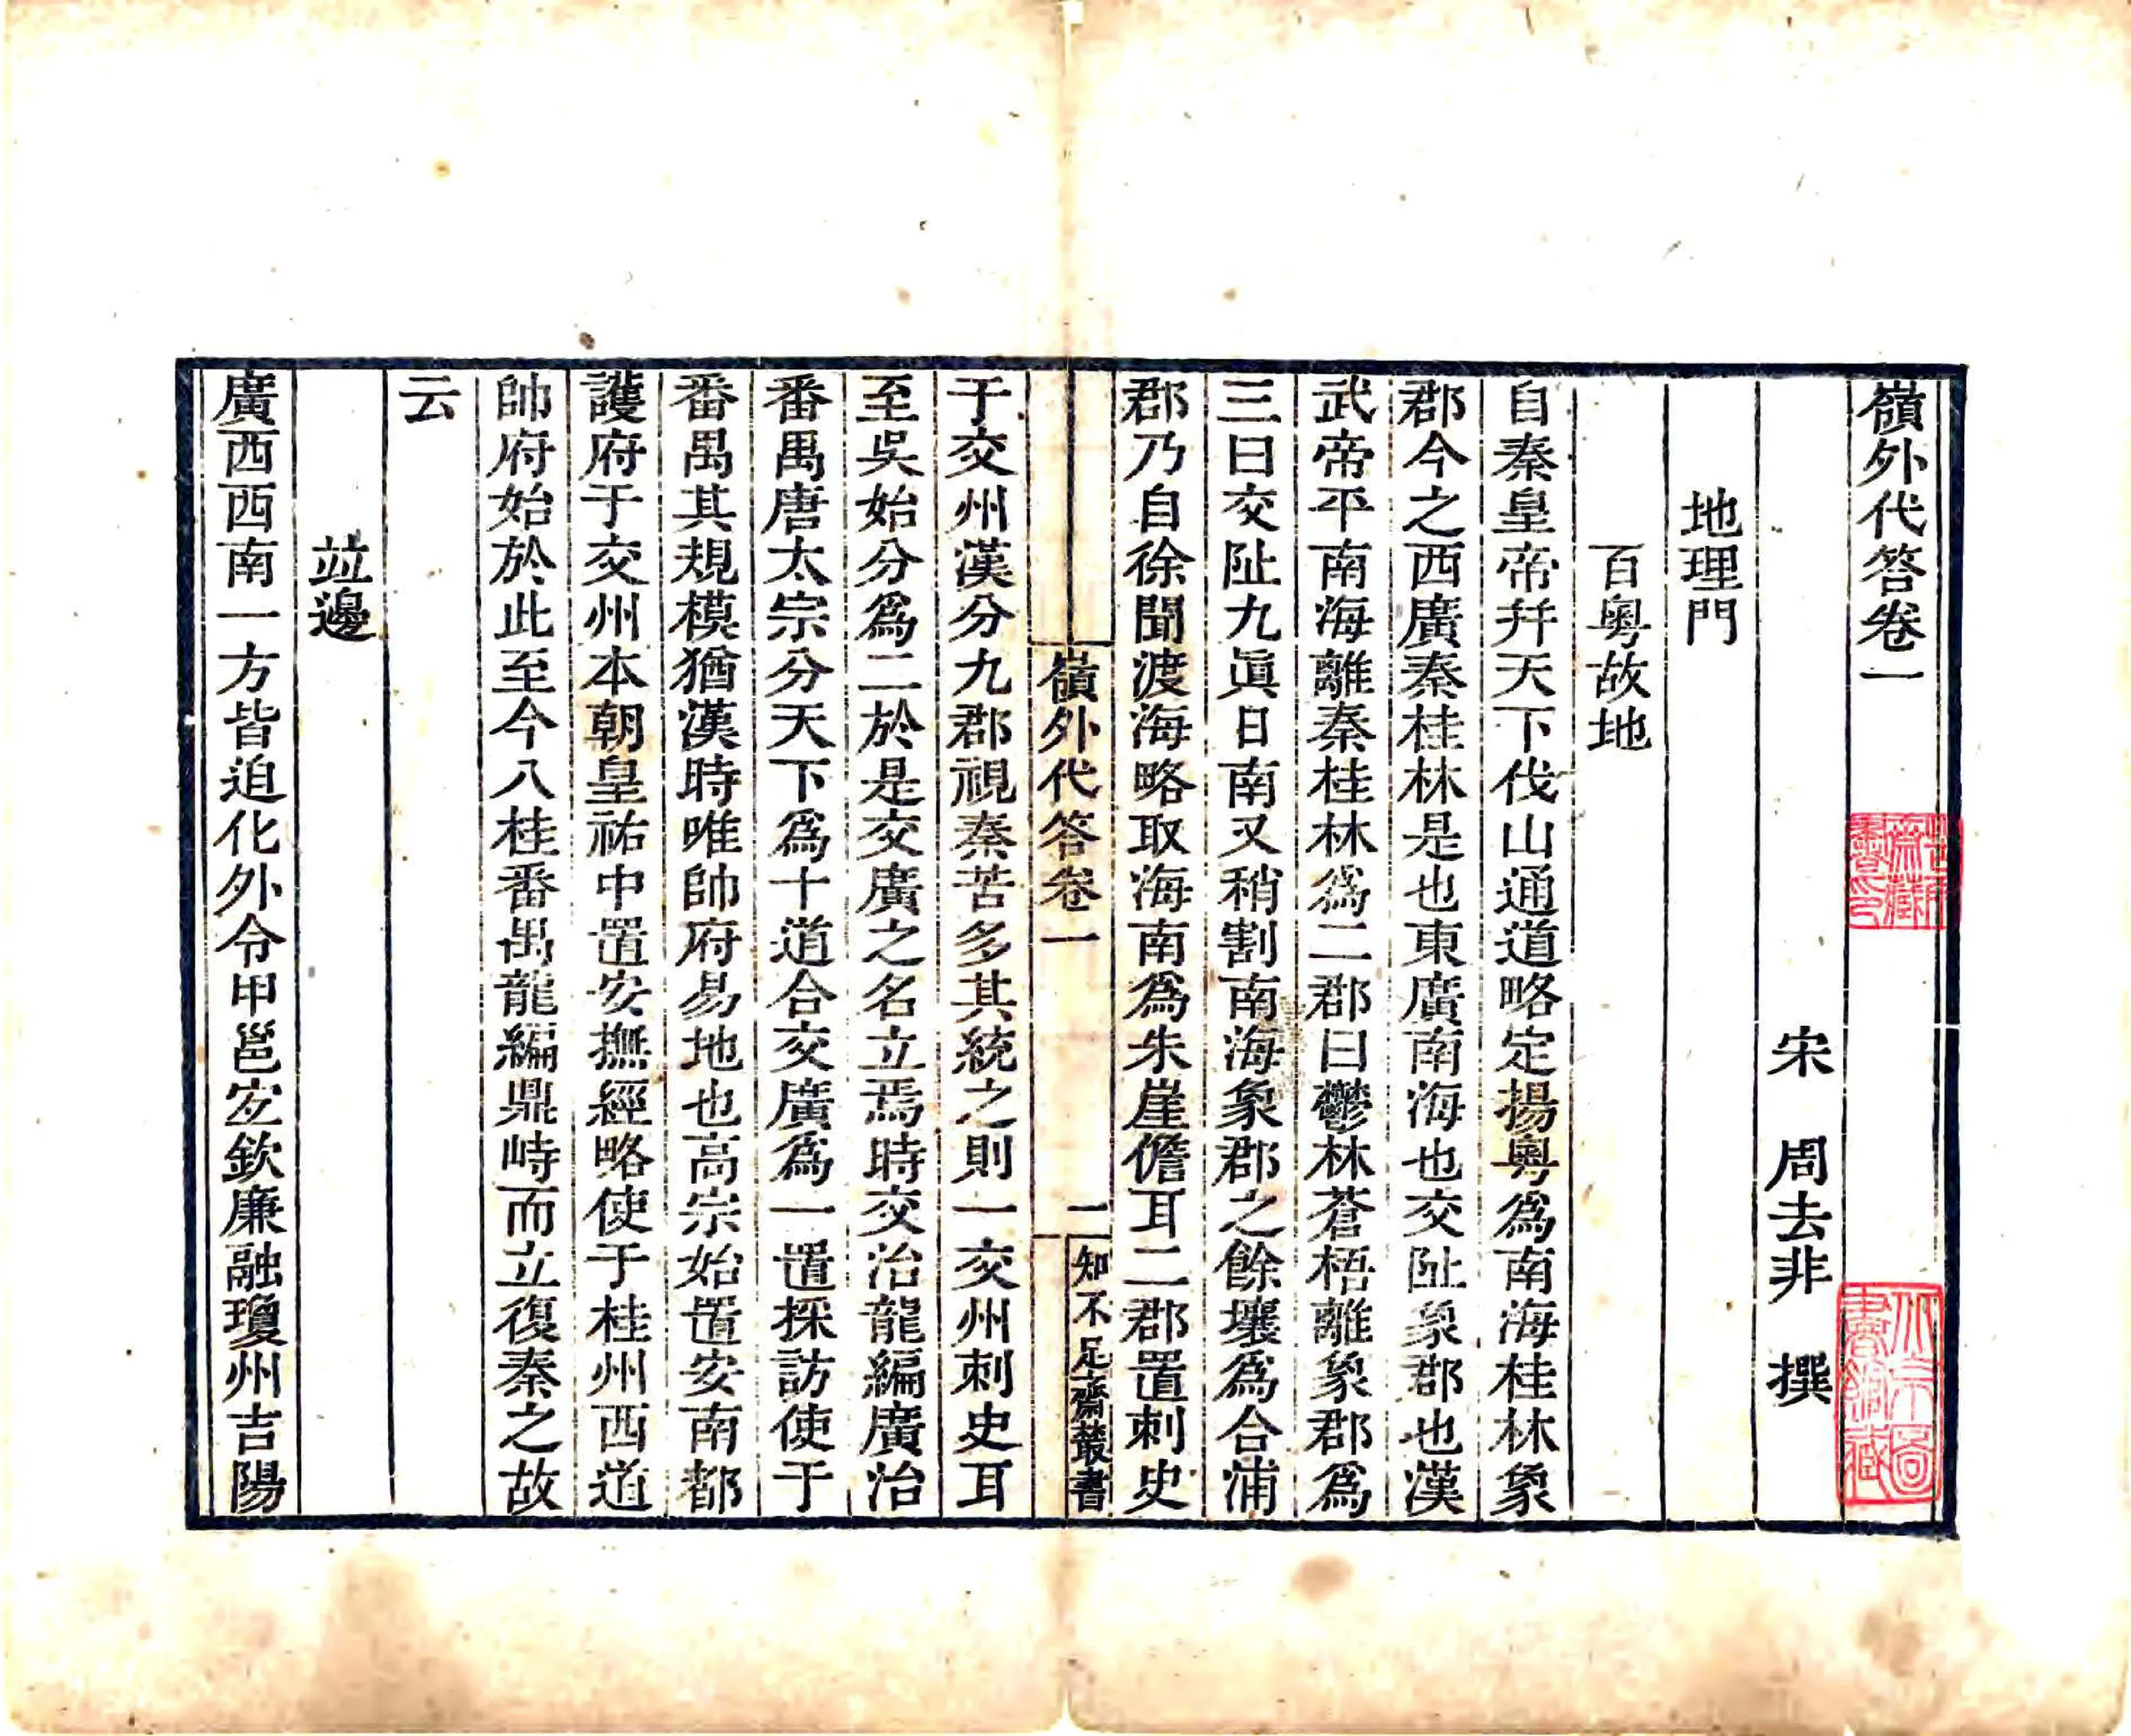 嶺外代答卷一
宋 周去非 撰
地理門
百粤故地
自秦皇帝幷天下伐山通道略定揚粤爲南海桂林象
郡今之西廣秦桂林是也東廣南海也交阯象郡也漢
武帝平南海離秦桂林爲二郡曰鬱林蒼梧離象郡爲
三曰交阯九眞日南又稍割南海象郡之餘壤爲合浦
郡乃自徐聞渡海略取海南爲朱崖儋耳二郡置刺史
嶺外代答卷一
一
知不足齋叢書
于交州漢分九郡視秦苦多其統之則一交州刺史耳
至吳始分爲二於是交廣之名立焉時交治龍編廣治
番禺唐太宗分天下爲十道合交廣爲一置採訪使于
番禺其規模猶漢時唯帥府易地也高宗始置安南都
護府于交州本朝皇祐中置安撫經略使于桂州西道
帥府始於此至今八桂番禺龍編鼎峙而立復秦之故
云
竝邊
廣西西南一方皆迫化外令甲邕宐欽廉融瓊州吉陽